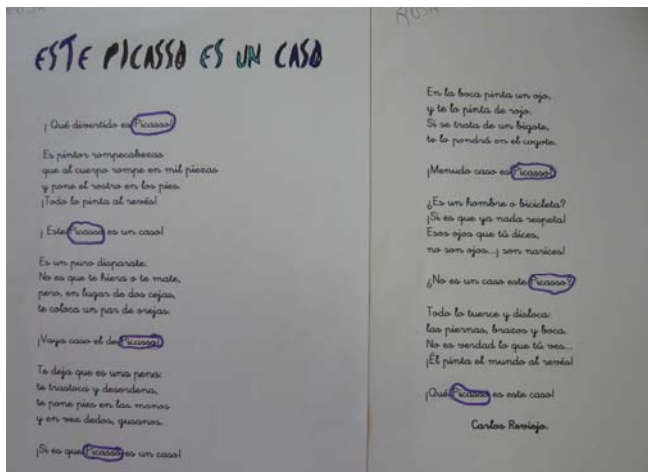 ROSA
ESTE PICASSO ES UN CASO
¡ Qué divertido es Picasso!
Es pintor rompecabezas
que al cuerpo rompe en mil piezas
y pone el rostro en los pies.
¡Todo lo pinta al revés!
¡ Este Picasso es un caso!
Es un puro disparate.
No es que te hiera o te mate,
pero, en lugar de dos cejas,
te coloca un par de orejas.
¡Vaya caso el de Picasso!
Te deja que es una pena:
te trastoca y desordena,
te pone pies en las manos
y en vez dedos, gusanos.
¡Si es que Picasso es un caso!
ROSA
En la boca pinta un ojo,
y te lo pinta de rojo.
Si se trata de un bigote,
te lo pondrá en el cogote.
¡Menudo caso es Picasso!
¿Es un hombre o bicicleta?
¡Si es que ya nada respeta!
Esos ojos que tú dices,
no son ojos...¡ son narices!
¿No es un caso este Picasso?
Todo lo tuerce y disloca:
las piernas, brazos y boca.
No es verdad lo que tú ves...
¡Él pinta el mundo al revés!
¡Qué Picasso es este caso!
Carlos Reviejo.